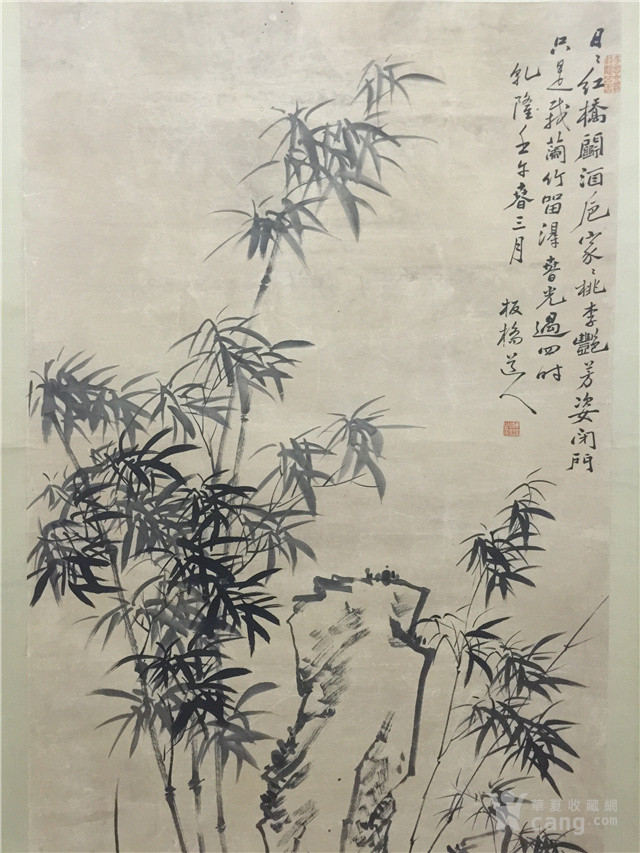 日〻紅橋鬭酒巵家〻桃李艷芳姿閉門
只是栽蘭竹留得春光過四時
乾隆壬午春三月
板橋道人
華夏收藏網
cang.com